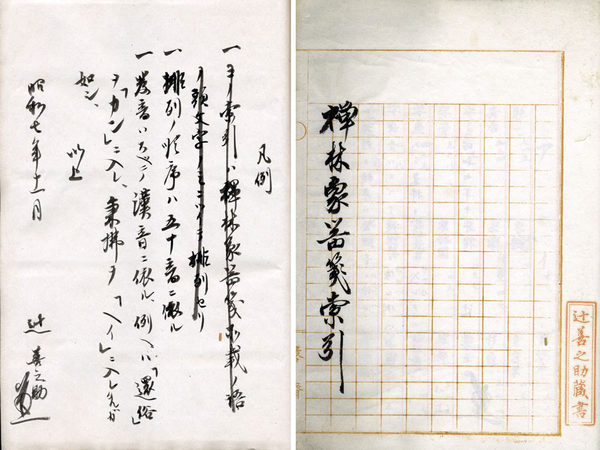 禅林象器箋索引
辻善之助藏書
凡例
一 コノ索引ハ禅林象器箋所載ノ語
ノ頭文字ノミニツイテ排列セリ
一 排列ノ順序ハ五十音ニ依ル
一 発音ハスベテ漢音ニ依ル、例ヘバ「還俗」
ヲ「カン」ニ入レ、秉拂ヲ「ヘイ」ニ入レタルガ
如シ、
以上
昭和七年十一月
辻善之助